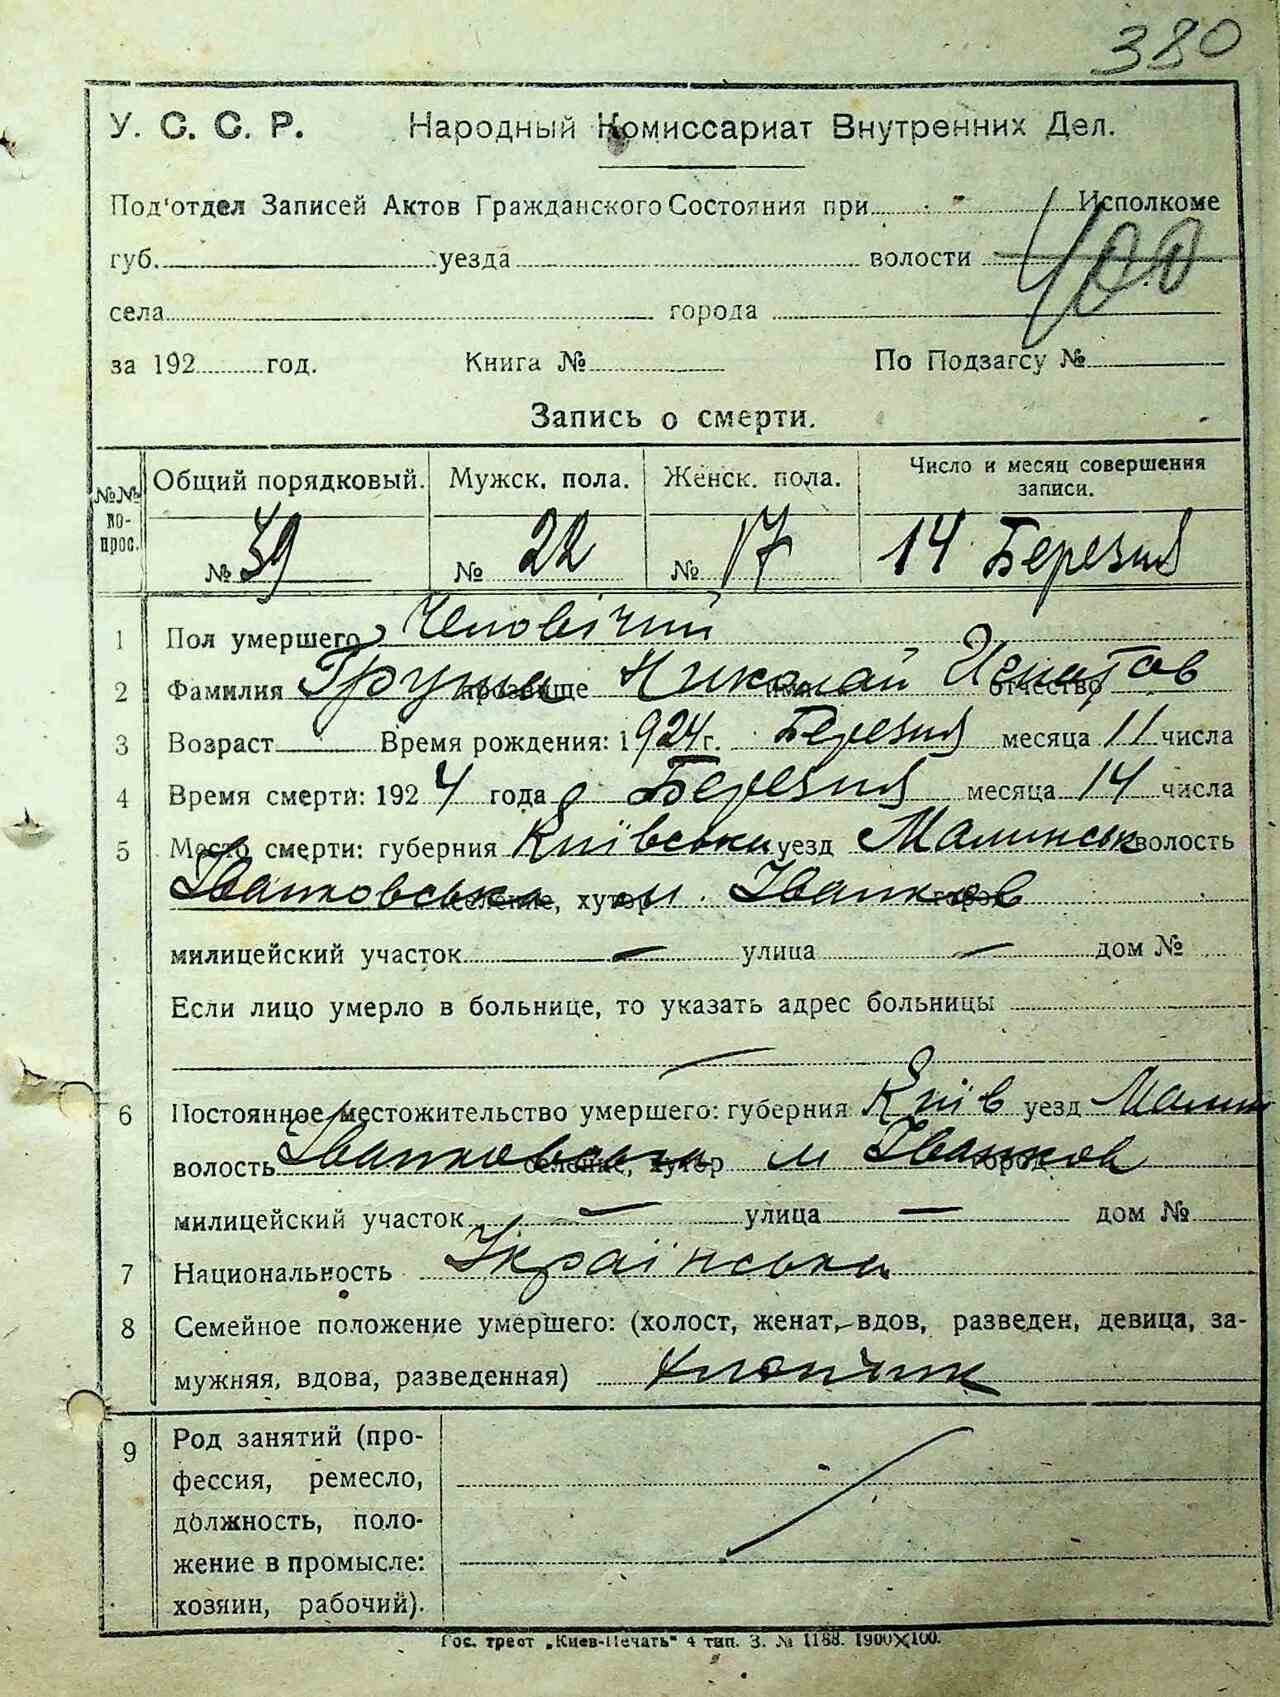 380
У. С. С. Р. Народный Комиссариат Внутренних Дел.
Под‘отдел Записей Актов Гражданского Состояния при Исполкоме
400
губ. уезда волости
села города
за 192 год. Книга № По Подзагсу №
Запись о смерти.
№№ по- прос. Общий порядковый. Мужск. пола. Женск. пола. Число и месяц совершения записи.
№ 39 № 22 № 17 14 Березня
1 Пол умершего Чоловічий
2 Фамилия Груша прозвище Николай имя Игнатов отчество
3 Возраст Время рождения: 1924 г. Березня месяца 11 числа
4 Время смерти: 1924 года Березня месяца 14 числа
5 Место смерти: губерния Київська уезд Малинськ волость
Іванковська селение, хутор м. Іванков город
милицейский участок — улица — дом №
Если лицо умерло в больнице, то указать адрес больницы
—
6 Постоянное местожительство умершего: губерния Київ уезд Малин
волость Іванковська селение, хутор м Іванков город
милицейский участок — улица — дом №
7 Национальность Українська
8 Семейное положение умершего: (холост, женат, вдов, разведен, девица, за-
мужняя, вдова, разведенная) хлопчик
9 Род занятий (про-
фессия, ремесло,
должность, поло-
жение в промысле:
хозяин, рабочий).
Гос. трест „Киев-Печать“ 4 тип. З. № 1188. 1900X100.